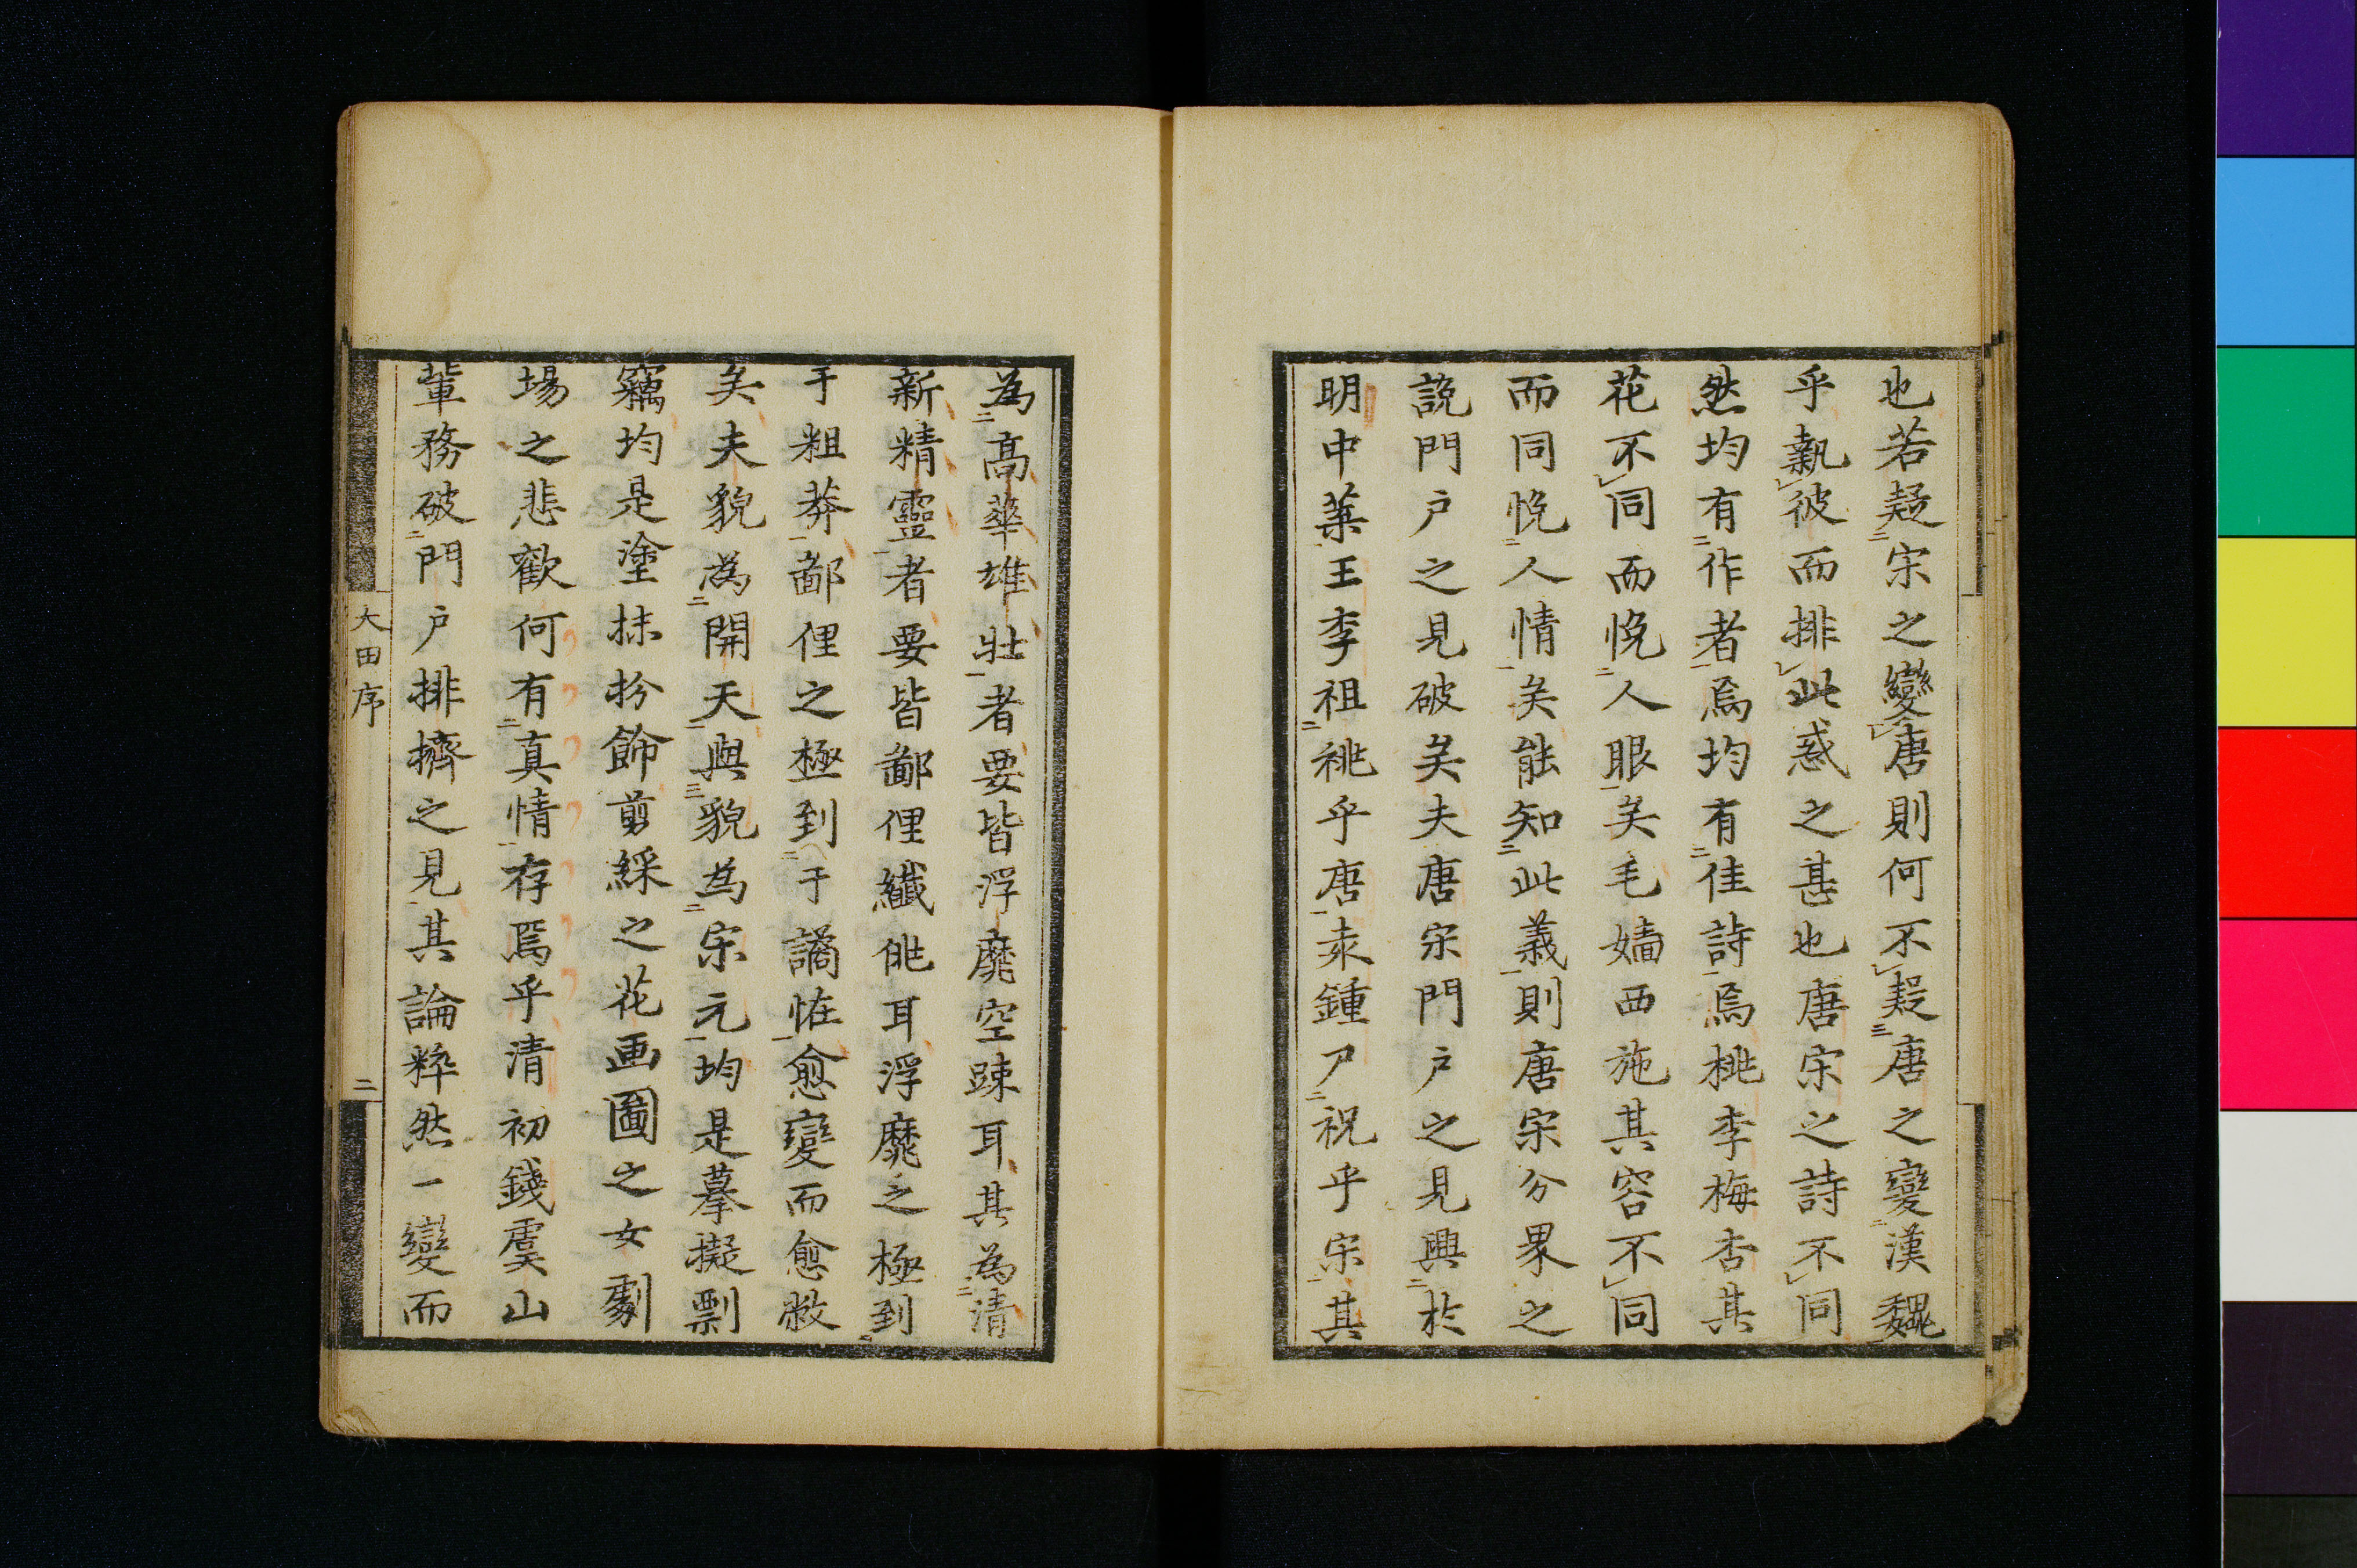 也若疑宋之變唐則何不疑唐之變漢魏
乎執彼而排此惑之甚也唐宋之詩不同
然均有作者焉均有佳詩焉桃李梅杏其
花不同而悦人眼矣毛嬙西施其容不同
而同悦人情矣能知此義則唐宋分界之
説門戶之見破矣夫唐宋門戶之見興於
明中葉王李祖祧乎唐袁鍾尸祝乎宋其
為高華雄壯者要皆浮靡空踈耳其為清
新精靈者要皆鄙俚纖佻耳浮靡之極到
于粗莽鄙俚之極到于譎恠愈變而愈敝
矣夫貌為開天與貌為宋元均是摹擬剽
竊均是塗抹扮飾剪綵之花画圖之女劇
場之悲歡何有真情存焉乎清初錢虞山
輩務破門戶排擠之見其論粹然一變而
大田序
二